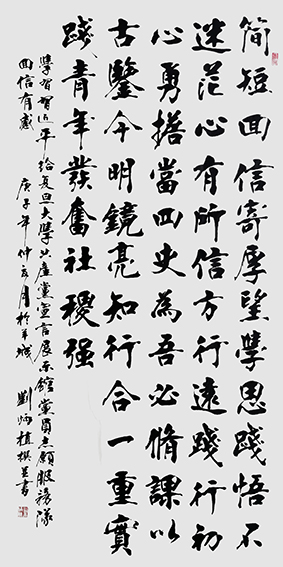 簡短回信寄厚望學思踐悟不
迷茫心有所信方行遠踐行初
心勇擔當四史為吾必脩課以
古鑒今明鏡亮知行合一重實
踐青年發奮社稷强
學習習近平給复旦大學共產黨宣言展示館黨員志願服務隊
回信有感 庚子年仲夏月於羊城 劉炳植撰並書